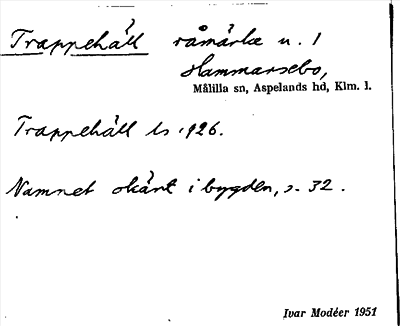 Trappehäll råmärke u. 1
Hammarsebo,
Målilla sn, Aspelands hd, Klm. l.
Trappehäll ls 1926.
Namnet okänt i bygden, s. 32.
Ivar Modéer 1951